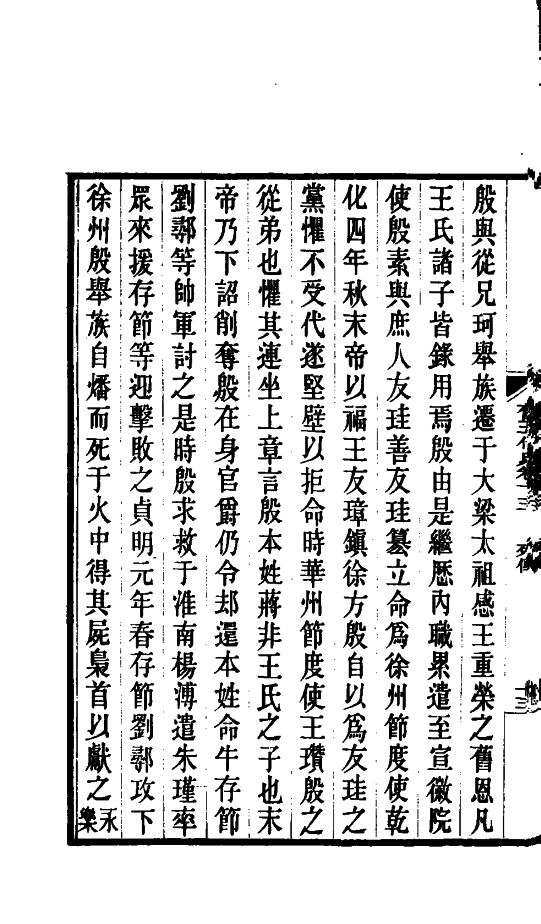 殷與從兄珂舉族遷于大梁太祖感王重榮之舊恩凡
王氏諸子皆錄用焉殷由是繼歷內職累遣至宣徽院
使殷素與庶人友珪善友珪篡立命爲徐州節度使乾
化四年秋末帝以福王友璋鎮徐方殷自以爲友珪之
黨懼不受代遂堅壁以拒命時華州節度使王瓚殷之
從弟也懼其連坐上章言殷本姓蔣非王氏之子也末
帝乃下詔削奪殷在身官爵仍令却還本姓命牛存節
劉鄩等帥軍討之是時殷求救于淮南楊溥遣朱瑾率
眾來援存節等迎擊敗之貞明元年春存節劉鄩攻下
徐州殷舉族自燔而死于火中得其屍梟首以獻之永
樂
列傳
十三